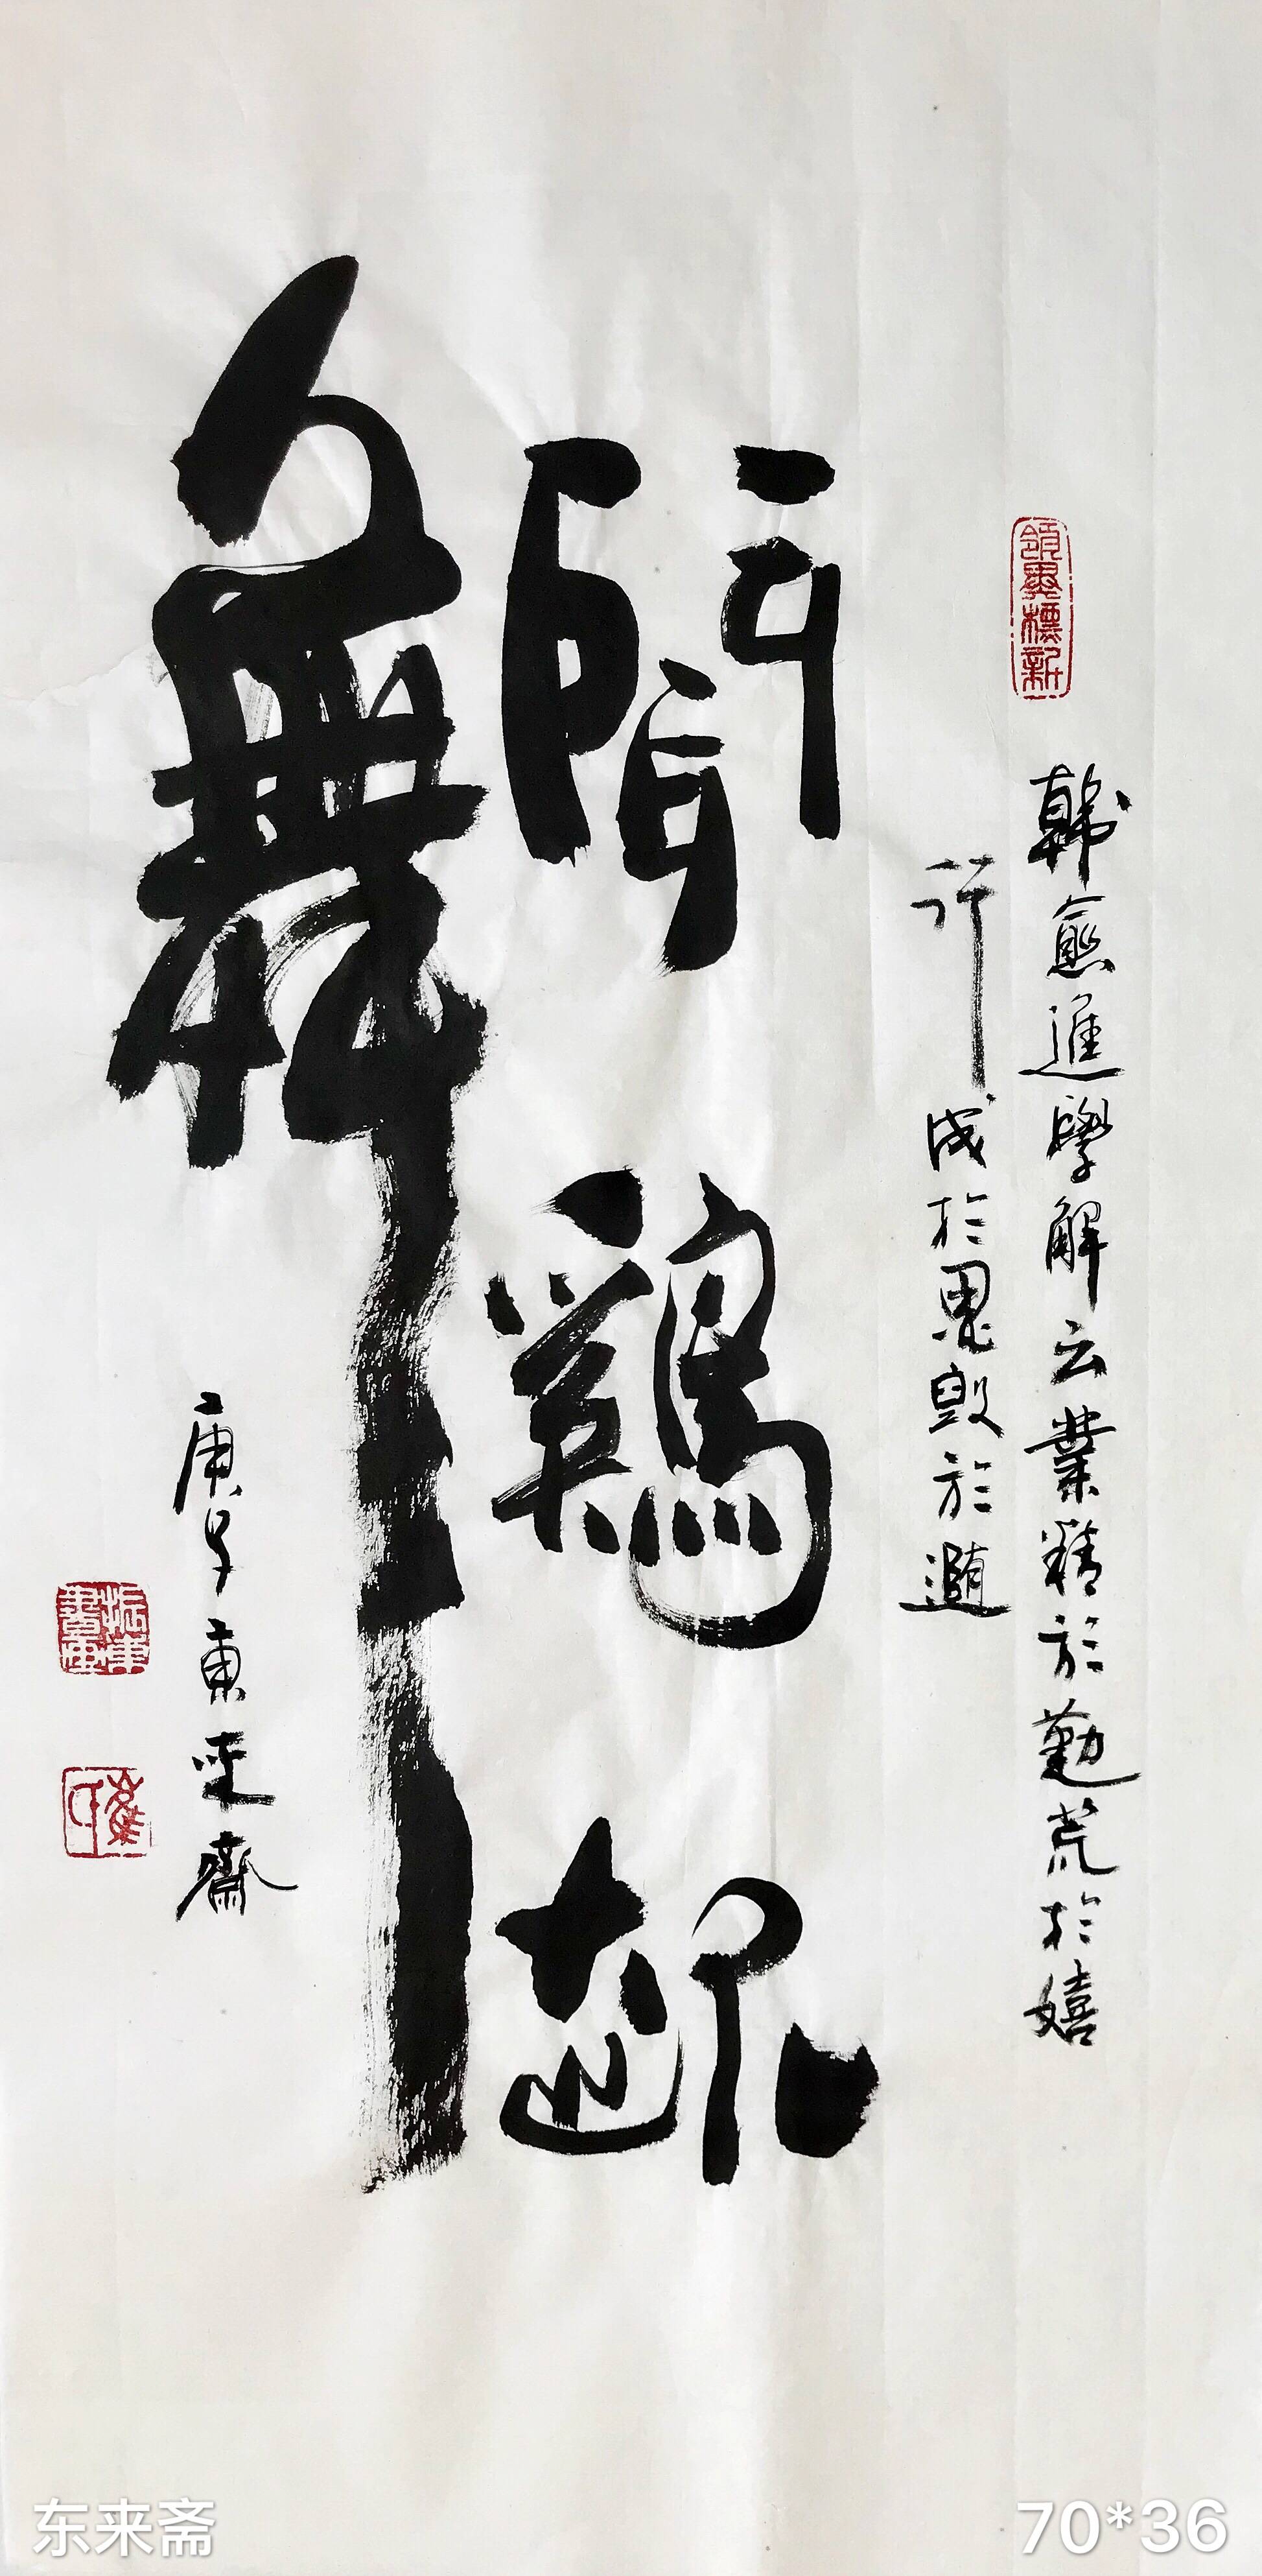 領異標新
韓愈進學解云業精於勤荒於嬉
行成於思毁於隨
聞鷄起
舞
庚子東來齋
东来斋
70*36